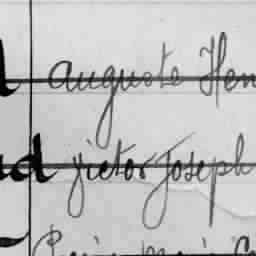 Auguste Hen
ud Victor Joseph